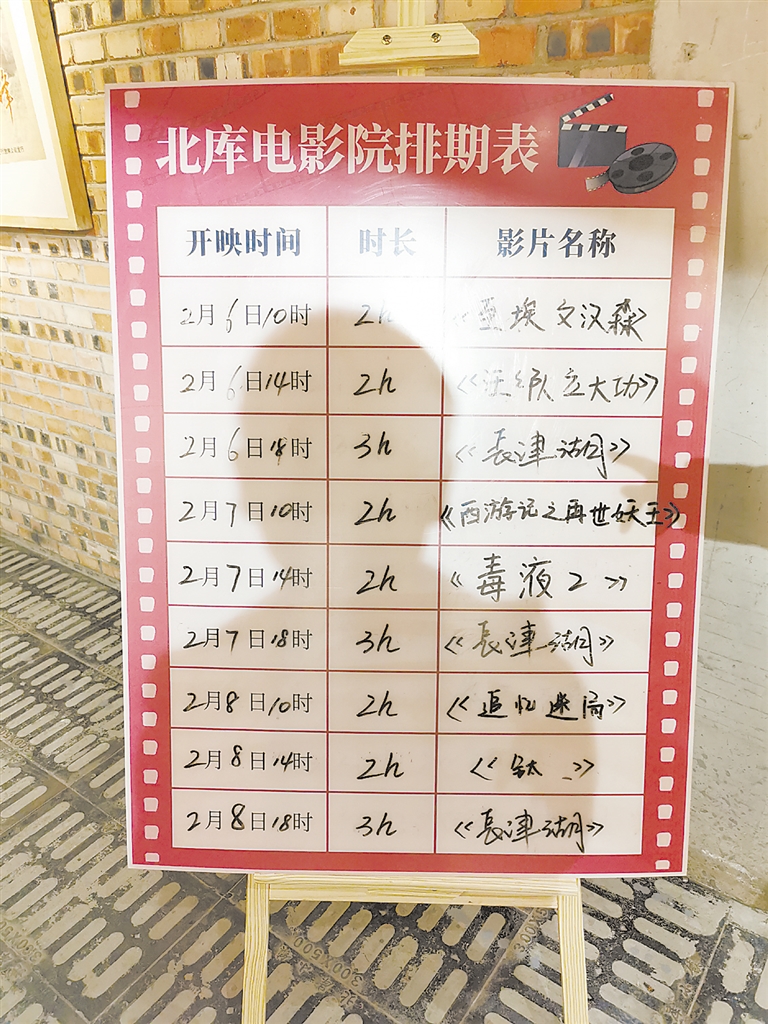 北库电影院排期表
开映时间 时长 影片名称
2月6日10时 2h 《亚埃文汉森》
2月6日14时 2h 《汪 队立大功》
2月6日18时 3h 《長津湖》
2月7日10时 2h 《西游记之再世妖王》
2月7日14时 2h 《毒液2》
2月7日18时 3h 《長津湖》
2月8日10时 2h 《追忆迷局》
2月8日14时 2h 《钛》
2月8日18时 3h 《長津湖》
300×500